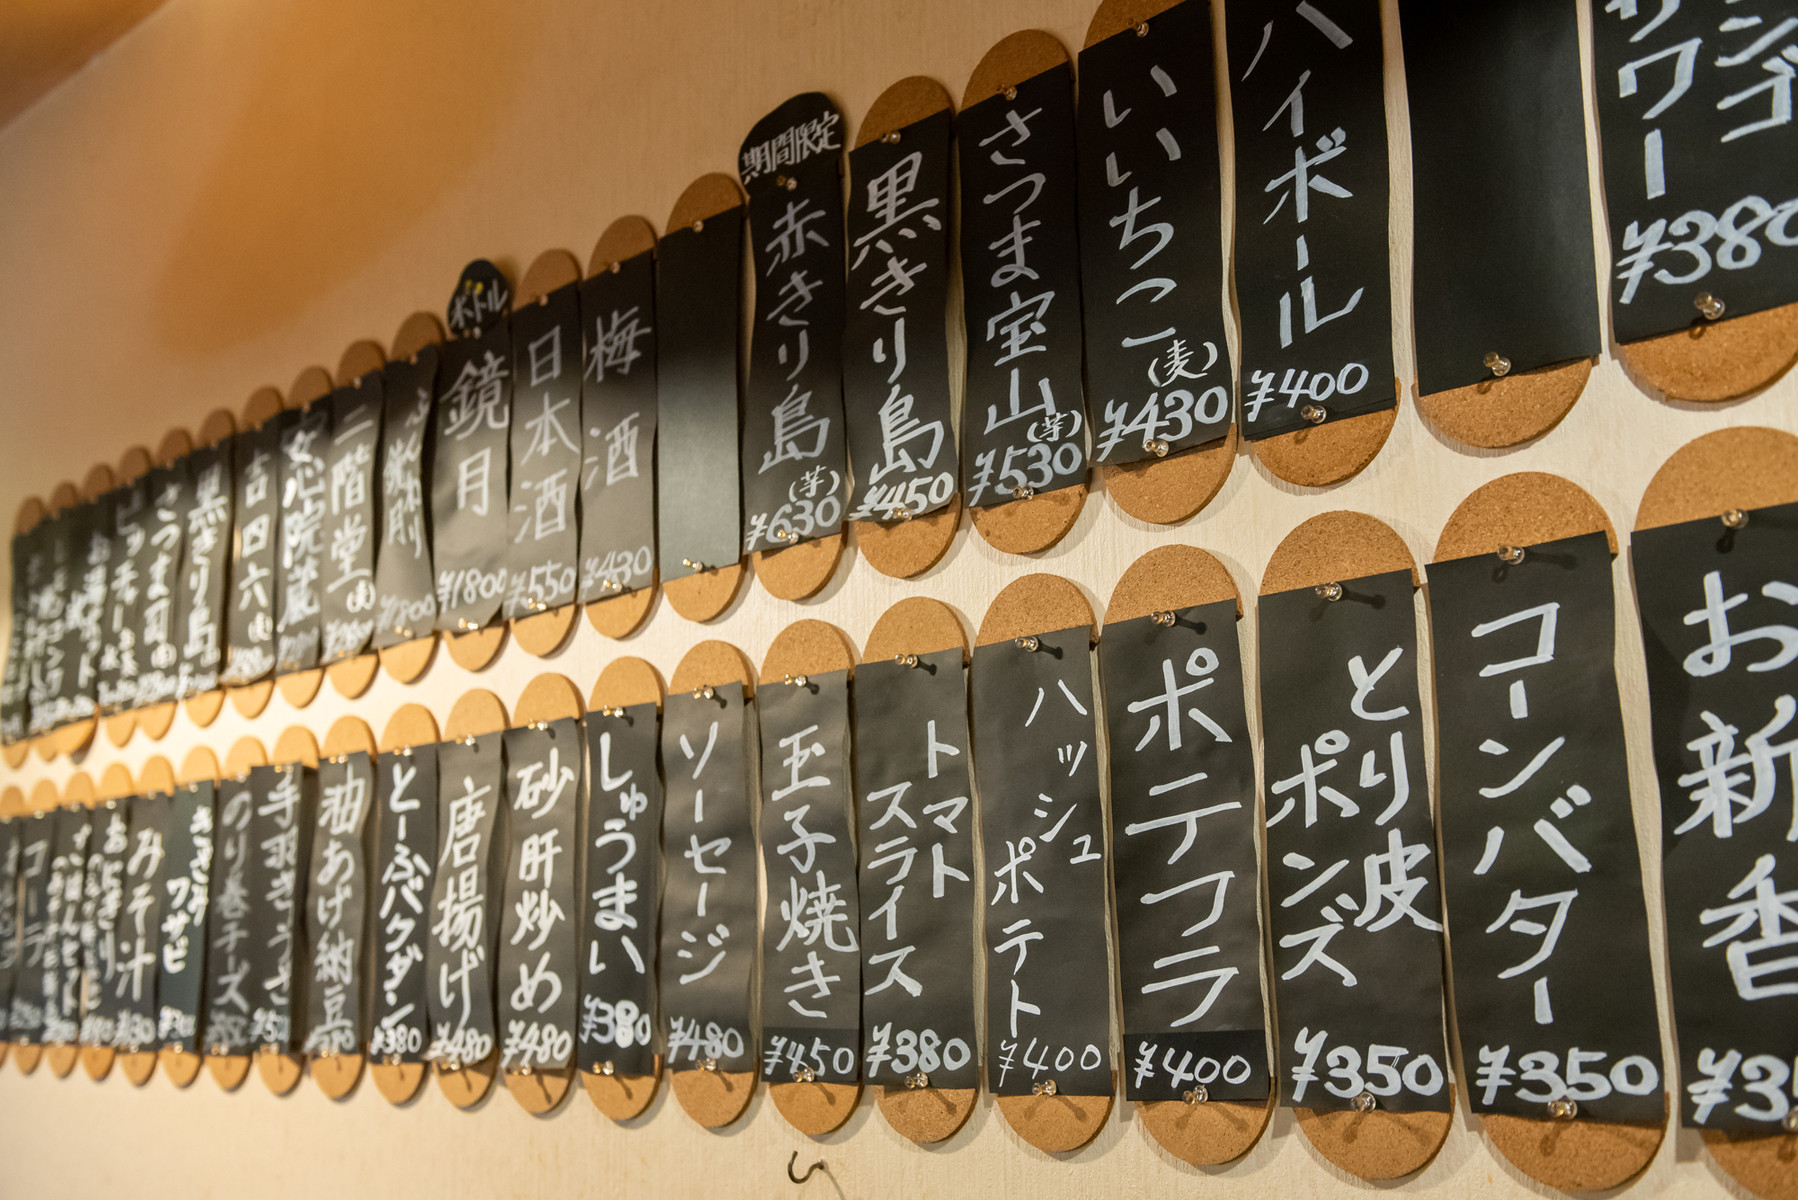 ンゴ
サワー
¥380
ハイボール
¥400
いいちこ
(麦)
¥430
さつま宝山
(芋)
¥530
黒きり島
¥450
期間限定
赤きり島
(芋)
¥630
梅酒
¥430
日本酒
¥550
ボトル
鏡月
¥1800
二階堂
安心院蔵
吉四六
黒きり島
お新香
¥35
コーンバター
¥350
とり皮
ポンズ
¥350
ポテフラ
¥400
ハッシュ
ポテト
¥400
トマト
スライス
¥380
玉子焼き
¥450
ソーセージ
¥480
しゅうまい
¥380
砂肝炒め
¥480
唐揚げ
¥480
とーふバクダン
¥380
油あげ納豆
のり巻チーズ
ワサビ
みそ汁
おにぎり
コーラ